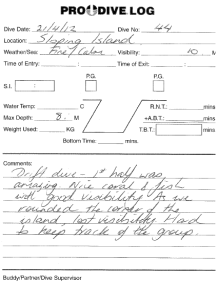 PRO DIVE LOG
Dive Date: 21/4/12 Dive No: 44
Location: Sloping Island
Weather/Sea: Fine / Calm Visibility: 10 M
Time of Entry: Time of Exit:
P.G. P.G.
S.I.
Water Temp: C R.N.T.: mins
Max Depth: 8. M +A.B.T.: mins
Weight Used: KG T.B.T. mins
Bottom Time: mins.
Comments:
Drift dive - 1st half was
amazing Nice coral & fish
with good visibility As we
rounded the corner of the
island, lost visibility Hard
to keep track of the group.
Buddy/Partner/Dive Supervisor